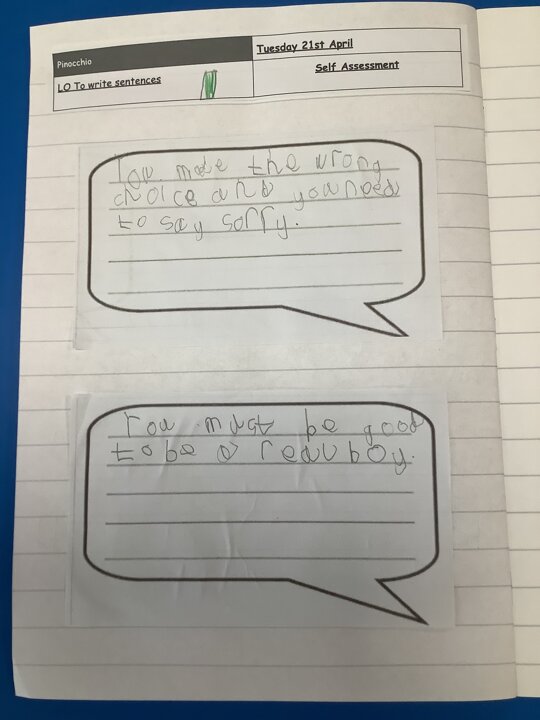 Pinocchio
Tuesday 21st April
LO To write sentences
Self Assessment
You made the wrong
choice and you need
to say sorry.
You must be good
to be a reau boy.